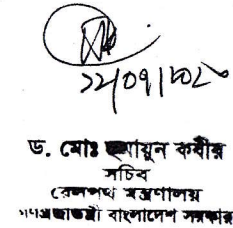 ড. মোঃ হুমায়ুন কবীর
সচিব
রেলপথ মন্ত্রণালয়
গণপ্রজাতন্ত্রী বাংলাদেশ সরকার